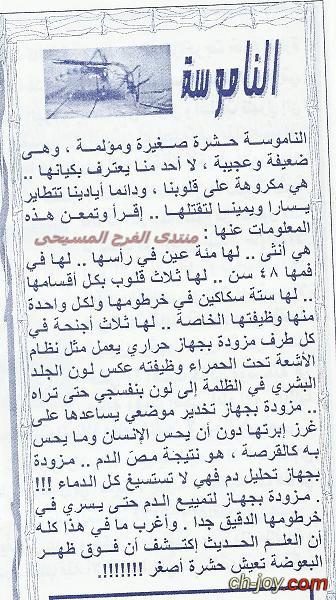 الناموسة
الناموسة حشرة صغيرة ومؤلمة ، وهى
ضعيفة وعجيبة ، لا أحد منا يعترف بكيانها ..
هي مكروهة على قلوبنا ، ودائما أيادينا تتطاير
يسارا ويمينا لتقتلها .. إقرأ وتمعن هذه
المعلومات عنها :
منتدى الفرح المسيحى
هي أنثى .. لها مئة عين في رأسها .. لها في
فمها ٤٨ سن .. لها ثلاث قلوب بكل أقسامها
.. لها ستة سكاكين في خرطومها ولكل واحدة
منها وظيفتها الخاصة .. لها ثلاث أجنحة في
كل طرف مزودة بجهاز حراري يعمل مثل نظام
الأشعة تحت الحمراء وظيفته عكس لون الجلد
البشري في الظلمة إلى لون بنفسجي حتى تراه
.. مزودة بجهاز تخدير موضعي يساعدها على
غرز إبرتها دون أن يحس الإنسان وما يحس
به كالقرصة ، هو نتيجة مص الدم .. مزودة
بجهاز تحليل دم فهي لا تستسيغ كل الدماء !!!
. مزودة بجهاز لتمييع الدم حتى يسري في
خرطومها الدقيق جدا .. وأغرب ما في هذا كله
أن العلم الحديث إكتشف أن فوق ظهر
البعوضة تعيش حشرة أصغر !!!!!!!.
ch-joy.com